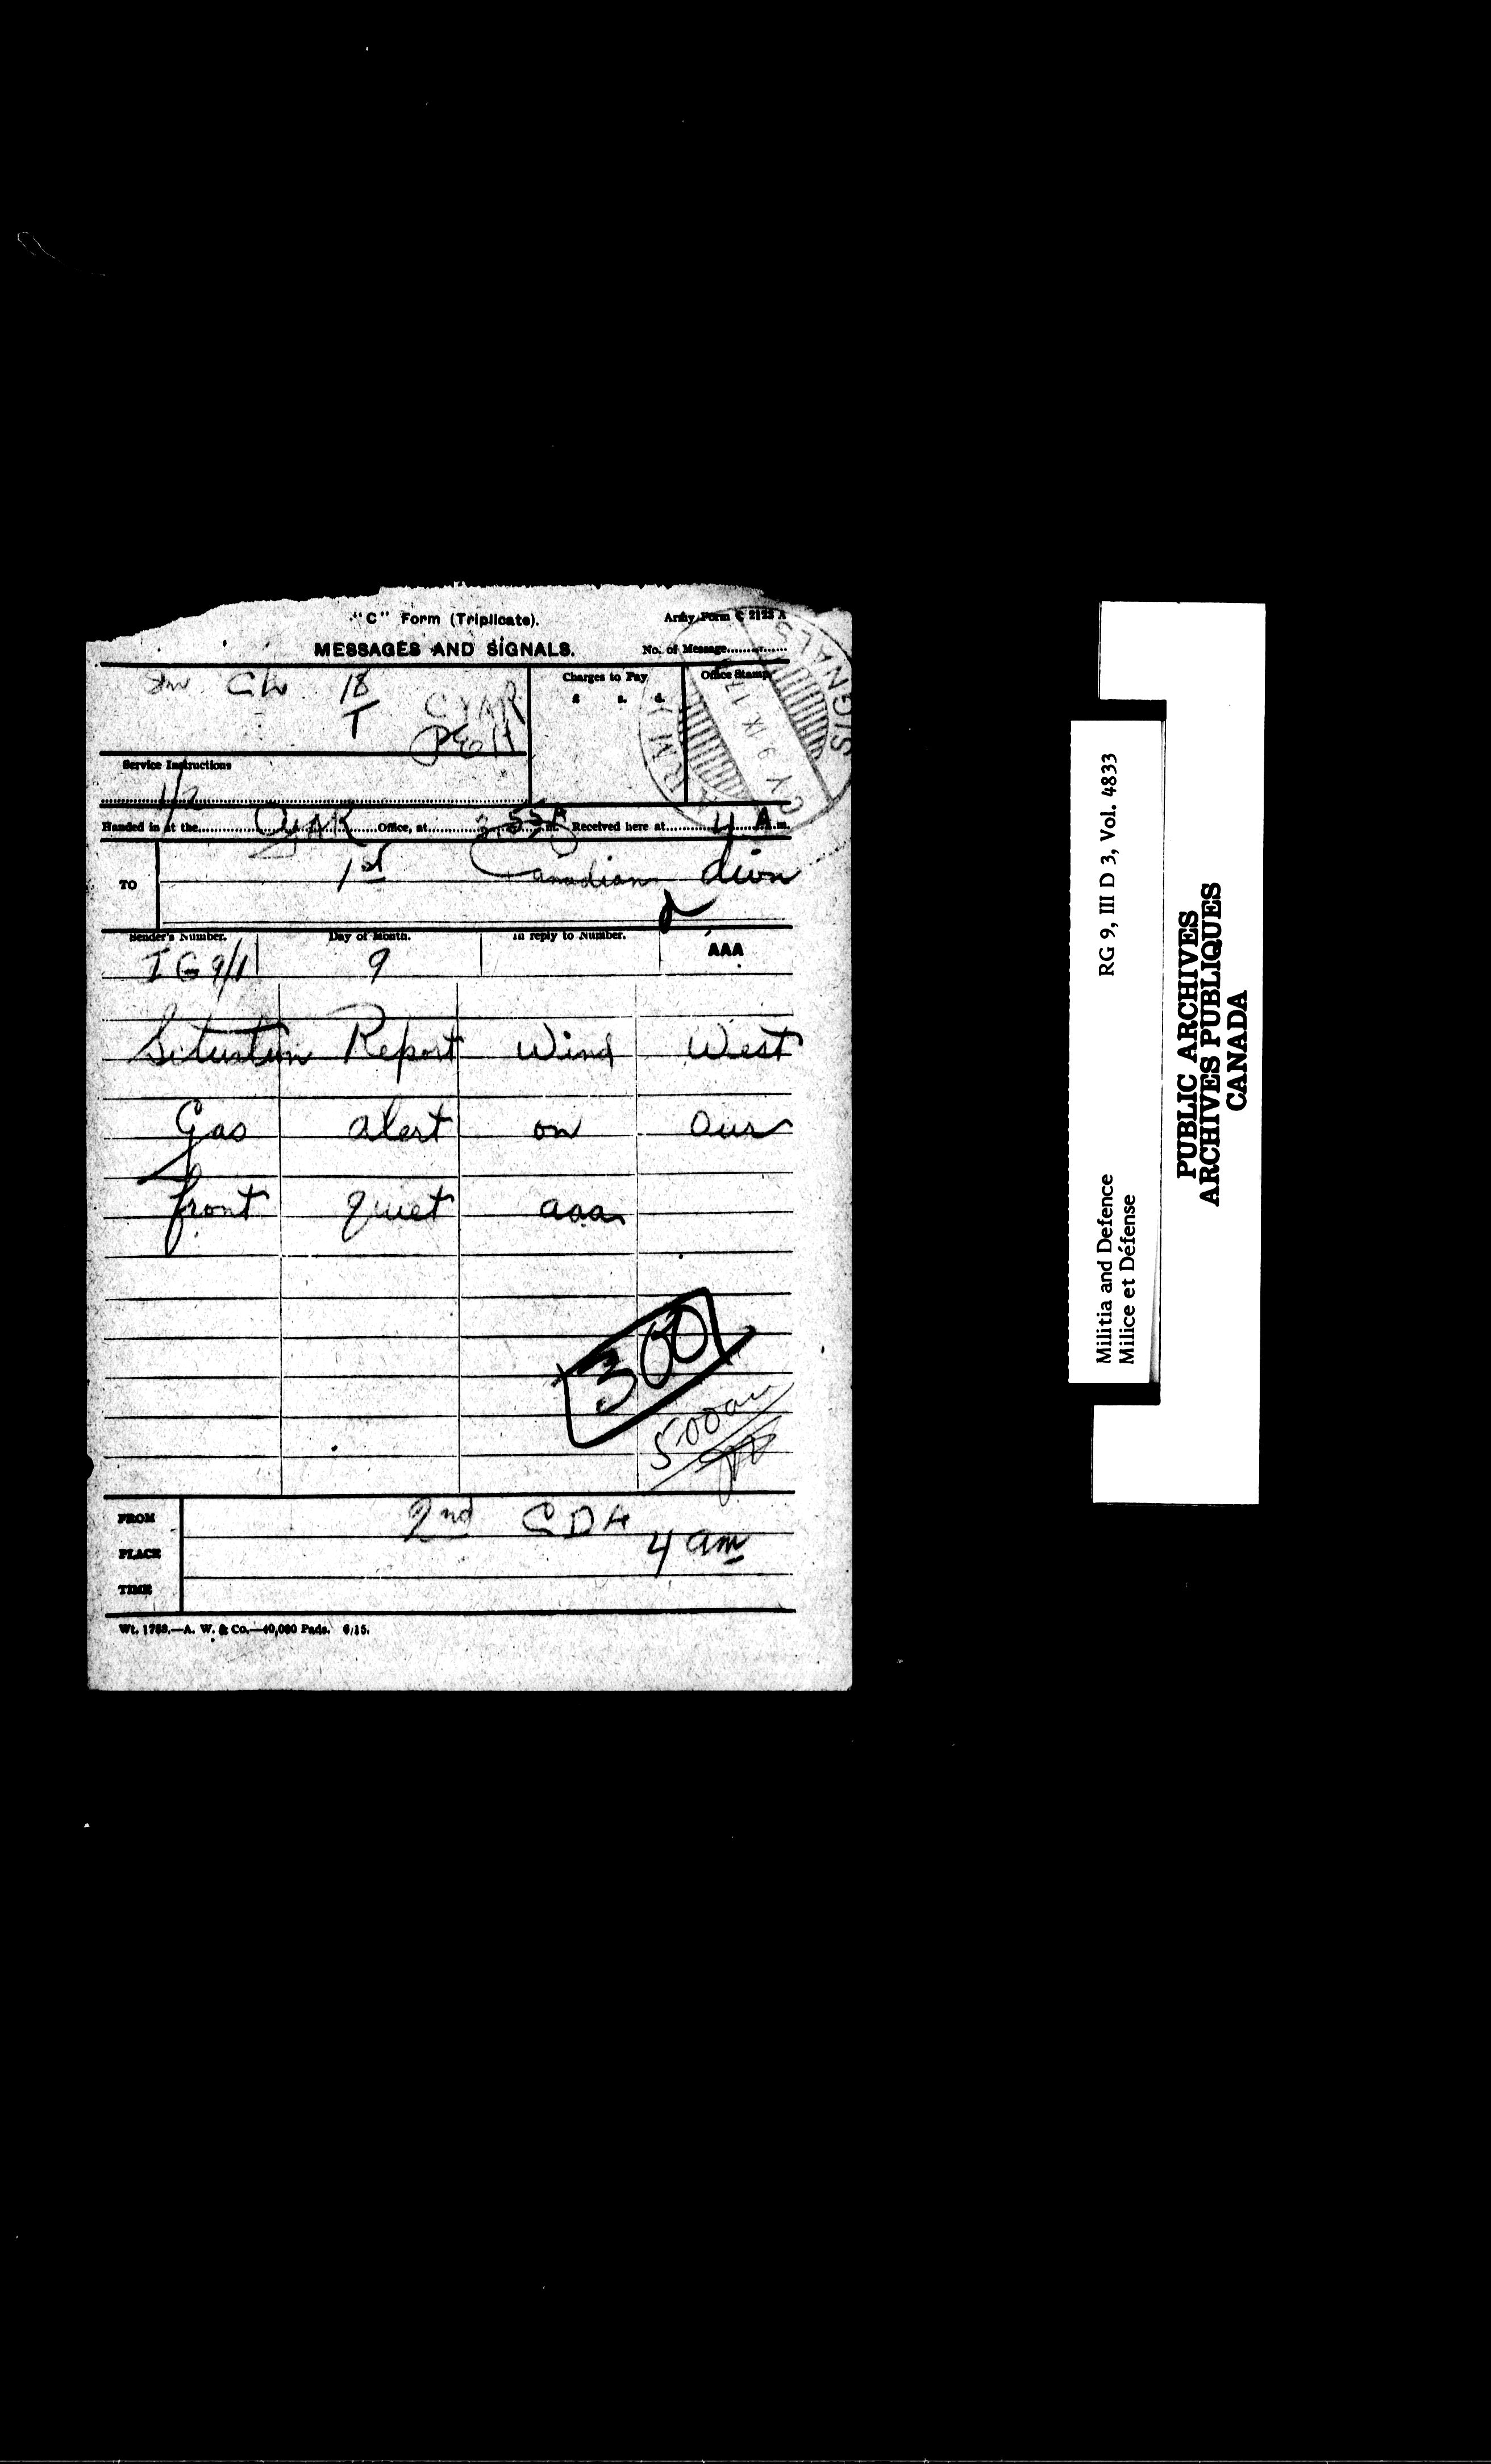 "C" Form (Triplicate). Army Form C 2123 A
MESSAGES AND SIGNALS. No. of Message
Sm Cw 18 Charges to Pay Office Stamp
T CYAR £ s. d.
ARMY SIGNALS
CY 9 IX 17
Service Instructions
1/2
Handed in at the CyAR Office, at 3.55A m. Received here at 4 A m.
TO 1st Canadian divn
Sender's Number. Day of Month. In reply to Number. AAA
IG 9/1 9
Situation Report Wind West
Gas alert on our
front quiet aaa
300
500am
FROM 2nd CDA
PLACE 4 am
TIME
Wt. 1758.—A. W. & Co.—40,000 Pads. 6/15.
Militia and Defence RG 9, III D 3, Vol. 4833
Milice et Défense
PUBLIC ARCHIVES
ARCHIVES PUBLIQUES
CANADA